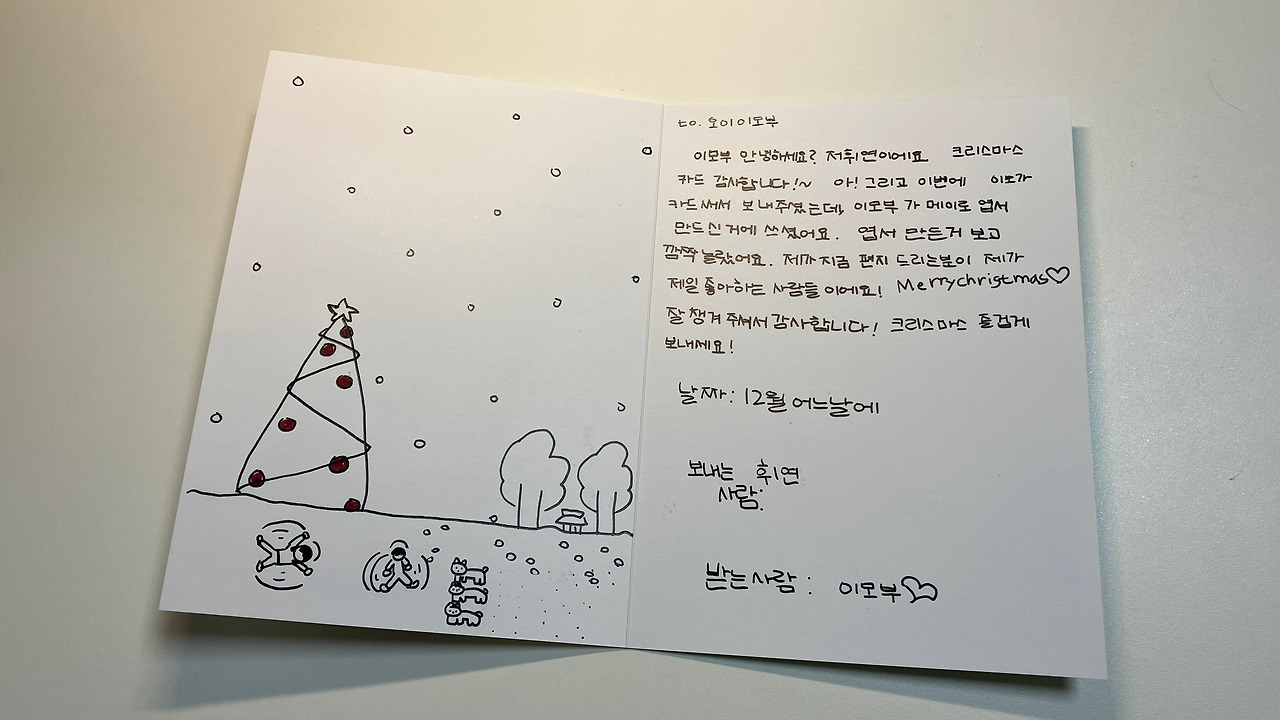 to. 오이이모부
이모부 안녕하세요? 저휘연이에요 크리스마스
카드 감사합니다!~ 아! 그리고 이번에 이모가
카드써서 보내주셨는데, 이모부가 메이로 엽서
만드신거에 쓰셨어요. 엽서 만든거 보고
깜짝놀랐어요. 제가지금 편지 드리는분이 제가
제일 좋아하는 사람들이에요! Merrychristmas♡
잘 챙겨 주셔서 감사합니다! 크리스마스 즐겁게
보내세요!
날짜: 12월 어느날에
보내는 휘연
사람:
받는사람 : 이모부♡